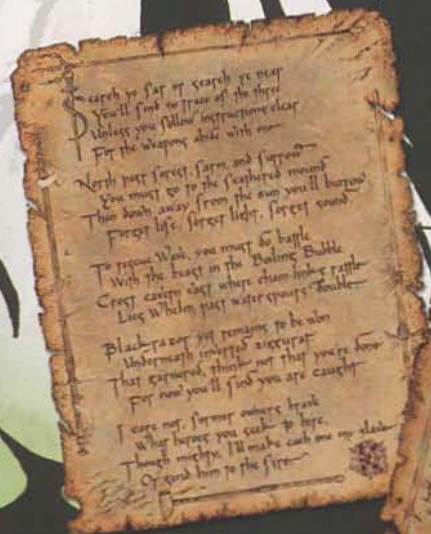 Search ye far or search ye near
You'll find no trace of the three
Unless you follow instructions clear
For the weapons abide with me
North past forest, farm, and furrow
You must go to the feathered mound
Then down away from the sun you'll burrow
Forget life, forget light, forget sound
To rescue Wave, you must do battle
With the beast in the Boiling Bubble
Cross cavern vast where chain links rattle
Lies Whelm past waterspouts double
Blackrazor yet remains to be won
Underneath inverted ziggurat
That garnered, think not that you're done
For now you'll find you are caught
I care not, former owners brave
What heroes you seek to hire,
Though mighty, I'll make each one my slave
Or send him to the fire